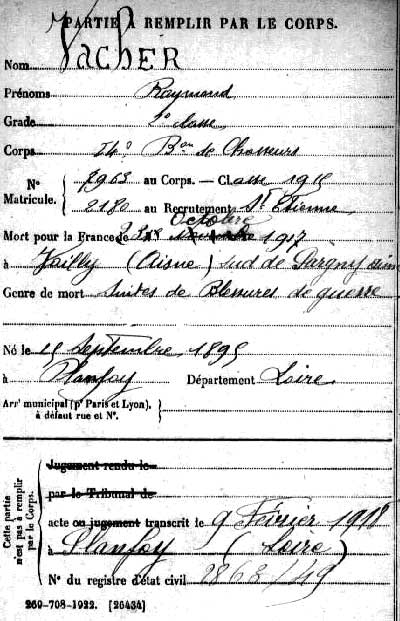 PARTIE À REMPLIR PAR LE CORPS.
Nom VACHER
Prénoms Raymond
Grade 2e classe
Corps 54e Bon de Chasseurs
N° Matricule. 7963 au Corps. — Classe 1915
2180 au Recrutement St Etienne
Octobre
Mort pour la France le 1917
à Vailly (Aisne) sud de Pargny
Genre de mort Suites de Blessures de guerre
Né le Septembre 1895
à Planfoy Département Loire
Arrt municipal (pr Paris et Lyon), à défaut rue et N°.
Cette partie n'est pas à remplir par le Corps.
Jugement rendu le
par le Tribunal de
acte ou jugement transcrit le 9 Février 1918
à Planfoy (Loire)
N° du registre d'état civil 2863/49
269-708-1922. [26434]